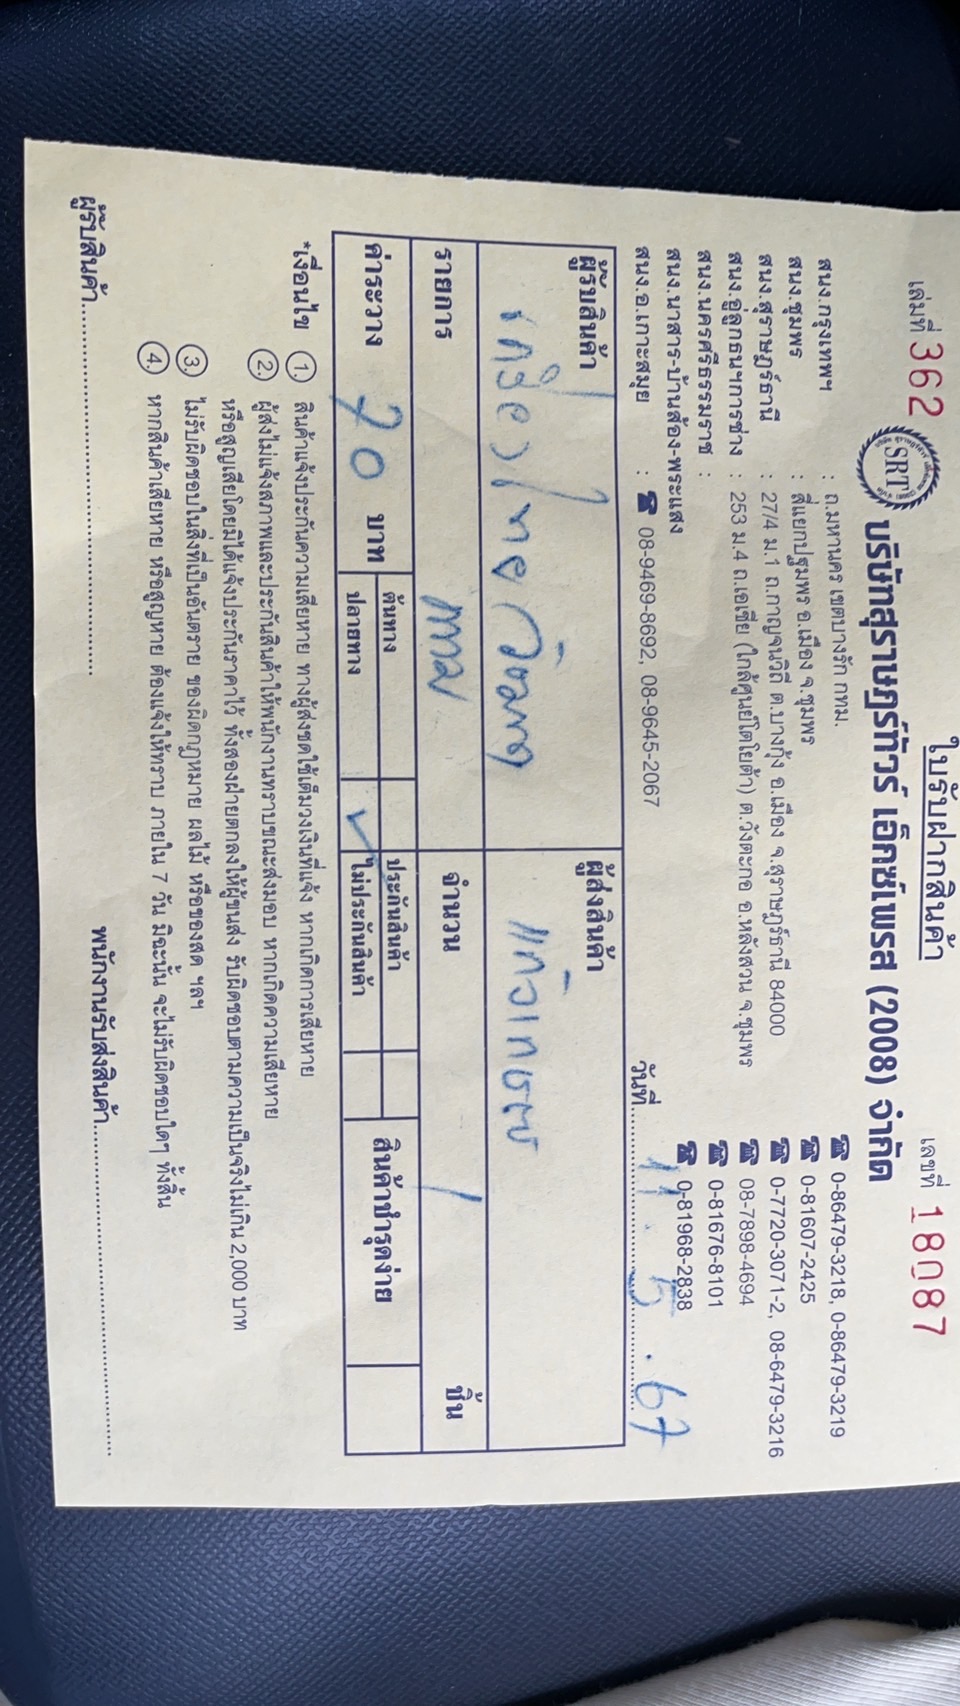 ใบรับฝากสินค้า
เล่มที่ 362
เลขที่ 18087
SRT
บริษัทสุราษฎร์ทัวร์ เอ็กซ์เพรส (2008) จำกัด
สนง.กรุงเทพฯ : ถ.มหานคร เขตบางรัก กทม. ☎ 0-86479-3218, 0-86479-3219
สนง.ชุมพร : สี่แยกปฐมพร อ.เมือง จ.ชุมพร ☎ 0-81607-2425
สนง.สุราษฎร์ธานี : 27/4 ม.1 ถ.กาญจนวิถี ต.บางกุ้ง อ.เมือง จ.สุราษฎร์ธานี 84000 ☎ 0-7720-3071-2, 08-6479-3216
สนง.อู่ลูกธนฯการช่าง : 253 ม.4 ถ.เอเชีย (ใกล้ศูนย์โตโยต้า) ต.วังตะกอ อ.หลังสวน จ.ชุมพร ☎ 08-7898-4694
สนง.นครศรีธรรมราช : ☎ 0-81676-8101
สนง.นาสาร-บ้านส้อง-พระแสง ☎ 0-81968-2838
สนง.อ.เกาะสมุย : ☎ 08-9469-8692, 08-9645-2067
วันที่ 11.5.67
ผู้รับสินค้า
ผู้ส่งสินค้า แก้วเกษม
รายการ
จำนวน 1 ชิ้น
ค่าระวาง 70 บาท
ต้นทาง
ปลายทาง ✓
ประกันสินค้า
ไม่ประกันสินค้า
สินค้าชำรุดง่าย
*เงื่อนไข 1. สินค้าแจ้งประกันความเสียหาย ทางผู้ส่งชดใช้เต็มวงเงินที่แจ้ง หากเกิดการเสียหาย
2. ผู้ส่งไม่แจ้งสภาพและประกันสินค้าให้พนักงานทราบขณะส่งมอบ หากเกิดความเสียหาย
หรือสูญเสียโดยมิได้แจ้งประกันราคาไว้ ทั้งสองฝ่ายตกลงให้ผู้ขนส่ง รับผิดชอบตามความเป็นจริงไม่เกิน 2,000 บาท
3. ไม่รับผิดชอบในสิ่งที่เป็นอันตราย ของผิดกฎหมาย ผลไม้ หรือของสด ฯลฯ
4. หากสินค้าเสียหาย หรือสูญหาย ต้องแจ้งให้ทราบ ภายใน 7 วัน มิฉะนั้น จะไม่รับผิดชอบใดๆ ทั้งสิ้น
ผู้รับสินค้า
พนักงานรับส่งสินค้า